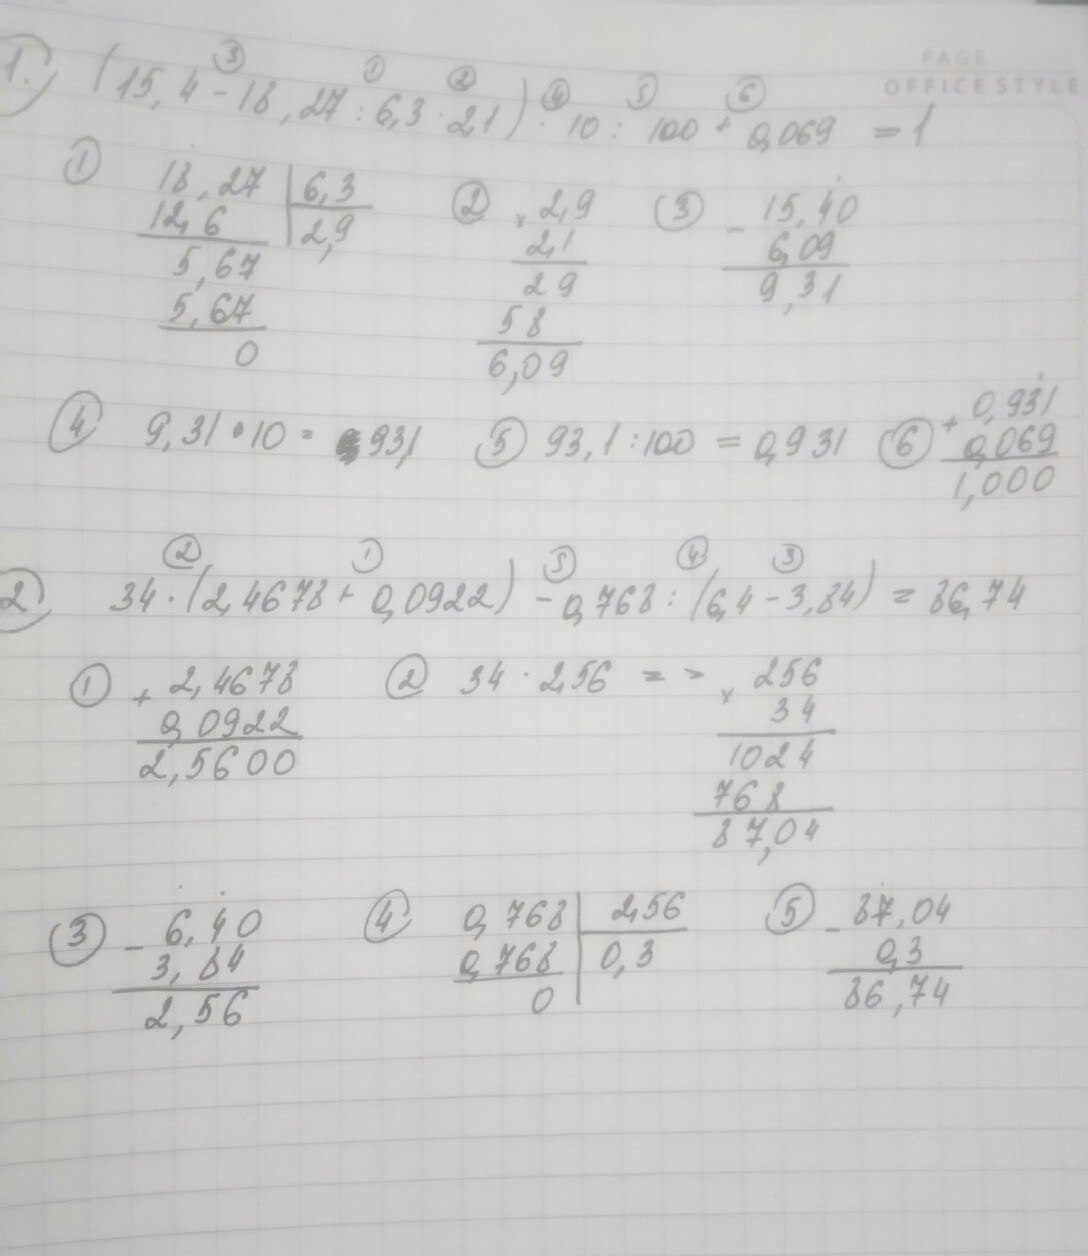 PAGE
OFFICE STYLE
③ ① ② ④ ⑤ ⑥
1.) (15,4 - 18,27 : 6,3 · 2,1) · 10 : 100 + 0,069 = 1
① 18,27 | 6,3
12,6 | 2,9
5,67
5,67
0
② × 2,9
2,1
29
58
6,09
③ - 15,40
6,09
9,31
④ 9,31 · 10 = 93,1
⑤ 93,1 : 100 = 0,931
⑥ + 0,931
0,069
1,000
② ① ⑤ ④ ③
2) 34 · (2,4678 + 0,0922) - 0,768 : (6,4 - 3,84) = 86,74
① + 2,4678
0,0922
2,5600
② 34 · 2,56 = > × 256
34
1024
768
87,04
③ - 6,40
3,84
2,56
④ 0,768 | 2,56
0,768 | 0,3
0
⑤ - 87,04
0,3
86,74